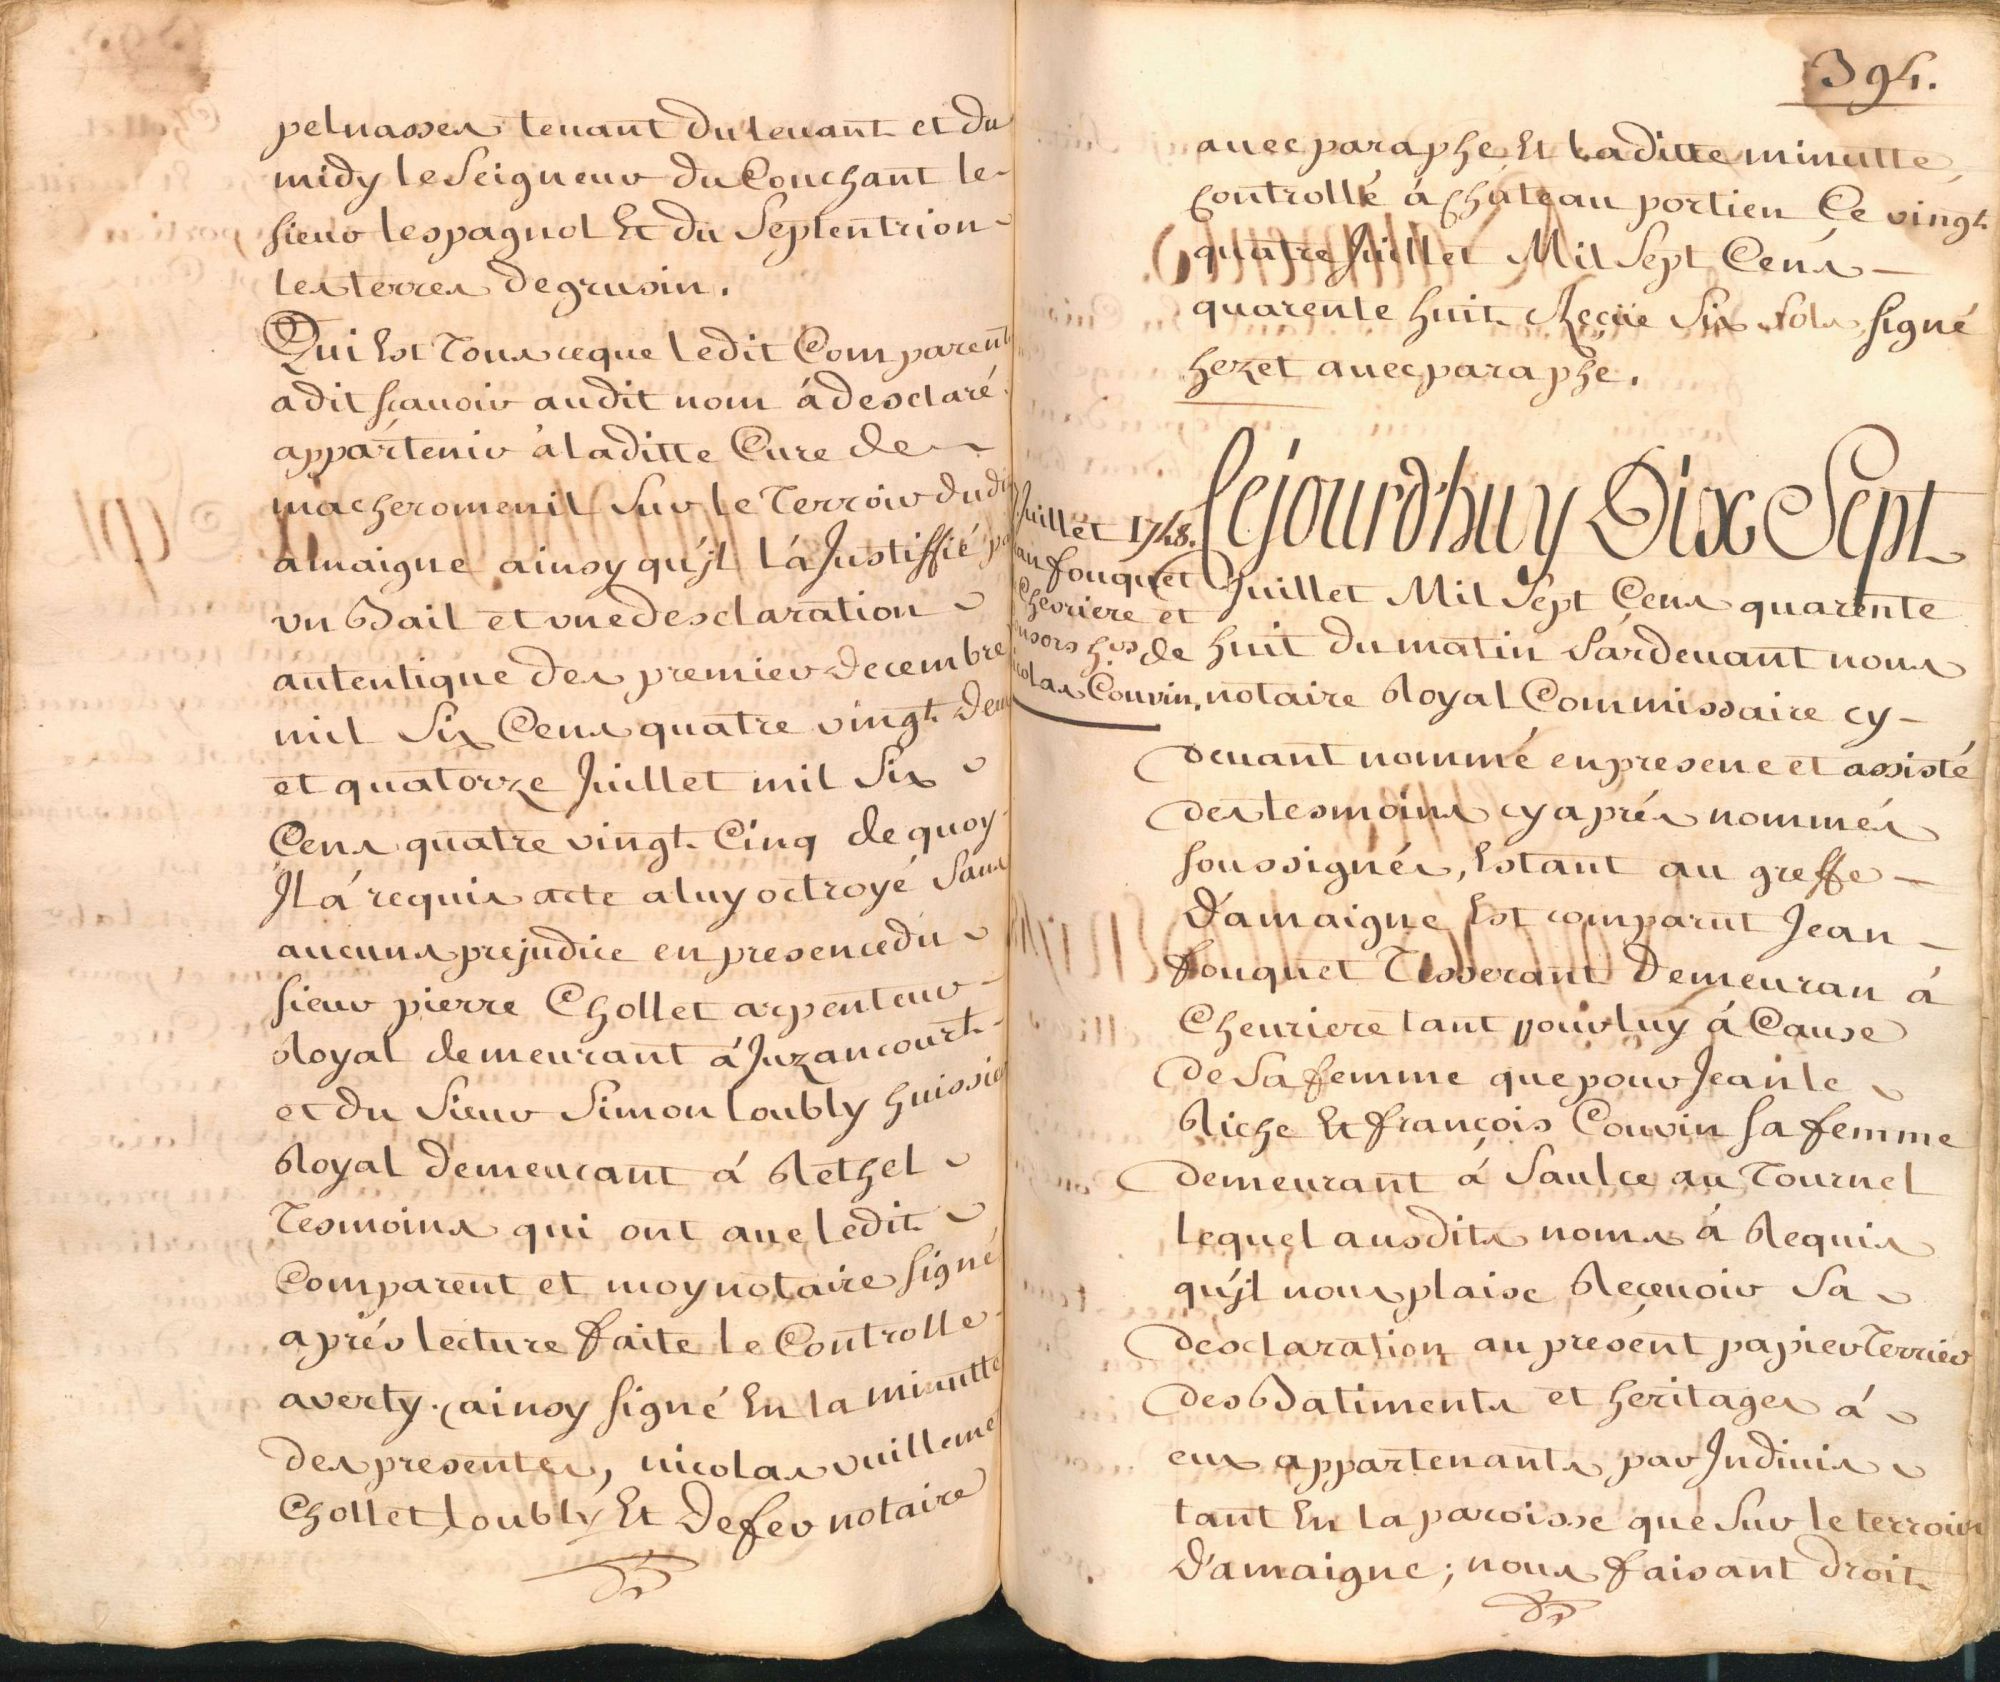 pelnasses tenant du levant et du
midy le Seigneur du Couchant le
sieur lespagnol Et du Septentrion
les terres de grusin.
Qui Est Tous ce que ledit Comparent
a dit sçavoir audit nom á desclaré
appártenir á laditte Cure de
macheromenil Sur le Terroir dudit
amaigne ainsy qu'jl l'á Justiffié
un Bail et une desclaration
autentique des premier decembre
mil Six Cens quatre vingt deux
et quatorze Juillet mil Six
Cens quatre vingt Cinq de quoy
Jl á requis acte a luy octroyé Sans
aucuns prejudice en presence du
sieur pierre Chollet arpenteur
Royal demeurant á Juzancourt
et du Sieur Simon loubly huissier
Royal demeurant á Rethel
Tesmoins qui ont avec ledit
Comparent et moy notaire signé
aprés lecture faite le Controlle
averty. ainsy signé En la minutte
des presentes, nicolas vuilleme
Chollet, loubly Et Defer notaire
394.
avec paraphe Et laditte minutte
Controllé á Cháteau portien Ce vingt
quatre Juillet Mil Sept Cens
quarente huit Reçüe Six sols signé
hezet avec paraphe.
Juillet 1748.
fouquet
Chevriere et
hrs de
Couvin.
Cejourd'huy Dix Sept
Juillet Mil Sept Cens quarente
huit du matin Pardevant nous
notaire Royal Commissaire cy
devant nommé en presene et assisté
des tesmoins cy aprés nommés
soussignés, Estant au greffe
D'amaigne Est comparut Jean
fouquet Tisserant Demeuran á
Chevriere tant pour luy á Cause
de Sa femme que pour Jean le
Riche Et françois Couvin sa femme
demeurant á Saulce au Tournel
lequel ausdits noms á Requis
qu'jl nous plaise Recevoir Sa
desclaration au présent papier Terrier
des Batiments et heritages á
eux appartenants par Indivis
tant En la paroisse que Sur le terroir
D'amaigne; nous faisant droit